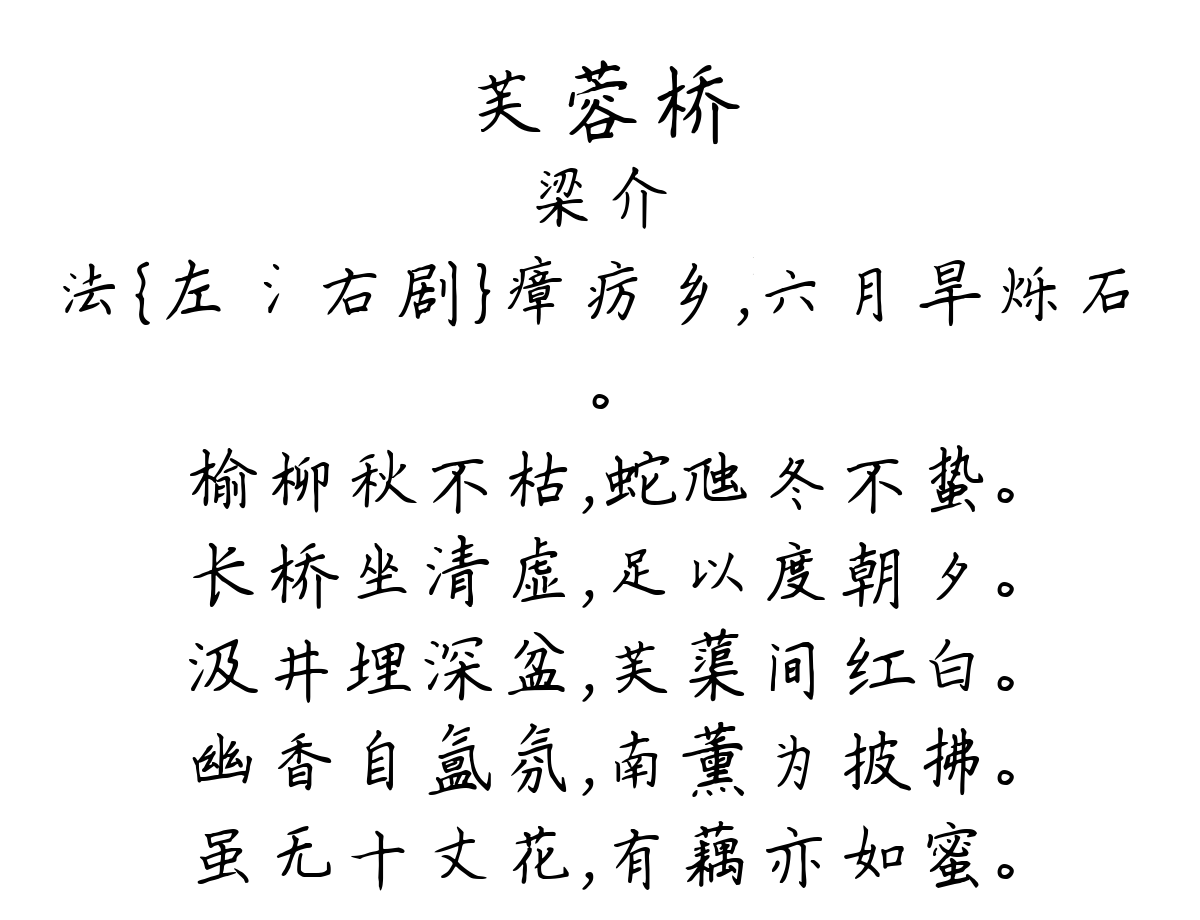 芙蓉桥
梁介
法{左氵右剧}瘴疠乡,六月旱烁石
。
榆柳秋不枯,蛇虺冬不蛰。
长桥坐清虚,足以度朝夕。
汲井埋深盆,芙蕖间红白。
幽香自氲氛,南薰为披拂。
虽无十丈花,有藕亦如蜜。